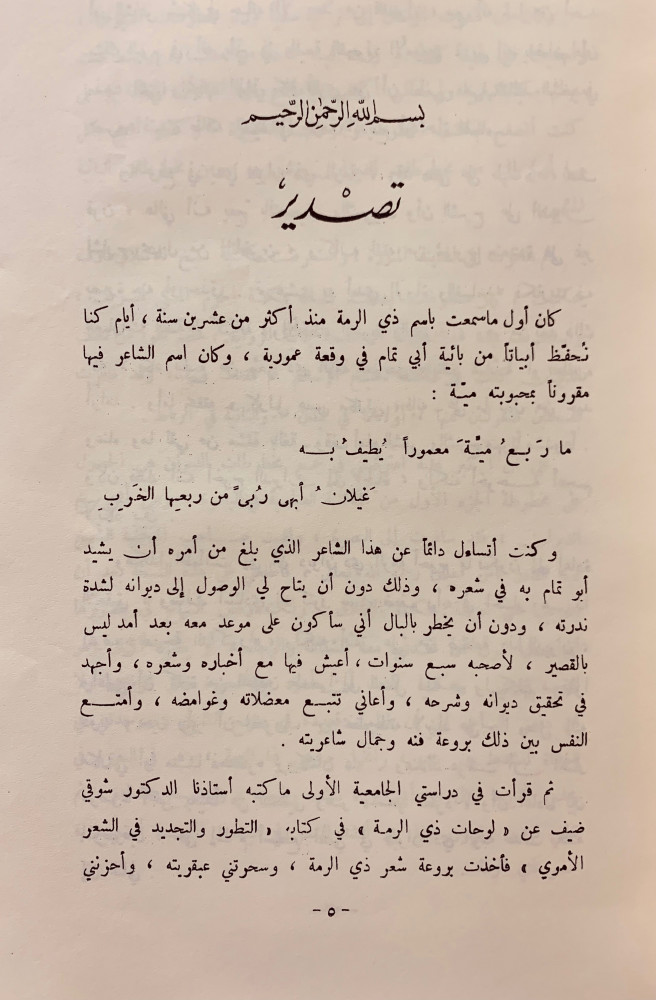 بسم الله الرحمن الرحيم
تصدير
كان أول ماسمعت باسم ذي الرمة منذ أكثر من عشرين سنة ، أيام كنا
نُحفّظ أبياتاً من بائية أبي تمام في وقعة عمورية ، وكان اسم الشاعر فيها
مقروناً بمحبوبته ميّة :
ما رَبعُ ميّةَ معموراً يُطيفُ به
غَيلانُ أبهى رُبىً من ربعِها الخَرِبِ
وكنت أتساءل دائماً عن هذا الشاعر الذي بلغ من أمره أن يشيد
أبو تمام به في شعره ، وذلك دون أن يتاح لي الوصول إلى ديوانه لشدة
ندرته ، ودون أن يخطر بالبال أني سأكون على موعد معه بعد أمد ليس
بالقصير ، لأصحبه سبع سنوات ، أعيش فيها مع أخباره وشعره ، وأجهد
في تحقيق ديوانه وشرحه ، وأعاني تتبع معضلاته وغوامضه ، وأمتع
النفس بين ذلك بروعة فنه وجمال شاعريته .
ثم قرأت في دراستي الجامعية الأولى ماكتبه أستاذنا الدكتور شوقي
ضيف عن « لوحات ذي الرمة » في كتابه « التطور والتجديد في الشعر
الأموي » فأخذت بروعة شعر ذي الرمة ، وسحرتني عبقريته ، وأحزنني
- ٥ -